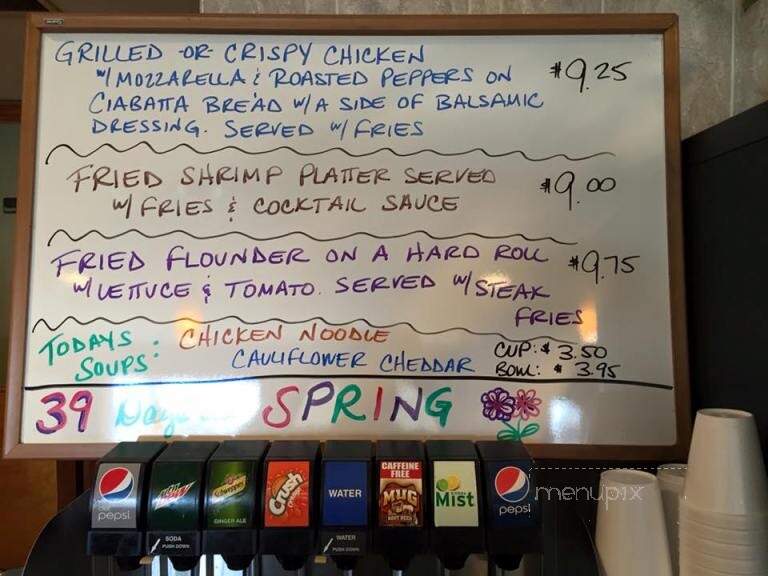 GRILLED -OR- CRISPY CHICKEN
W/ MOZZARELLA & ROASTED PEPPERS ON $9.25
CIABATTA BREAD W/ A SIDE OF BALSAMIC
DRESSING. SERVED W/ FRIES
FRIED SHRIMP PLATTER SERVED $9.00
W/ FRIES & COCKTAIL SAUCE
FRIED FLOUNDER ON A HARD ROLL $9.75
W/ LETTUCE & TOMATO. SERVED W/ STEAK
FRIES
TODAYS SOUPS:
CHICKEN NOODLE
CAULIFLOWER CHEDDAR
CUP: $3.50
BOWL: $3.95
39 Days SPRING
pepsi
MTN DEW
Schweppes
GINGER ALE
Crush
WATER
CAFFEINE FREE
MUG
ROOT BEER
Mist
pepsi
SODA
PUSH DOWN
WATER
PUSH DOWN
menupix